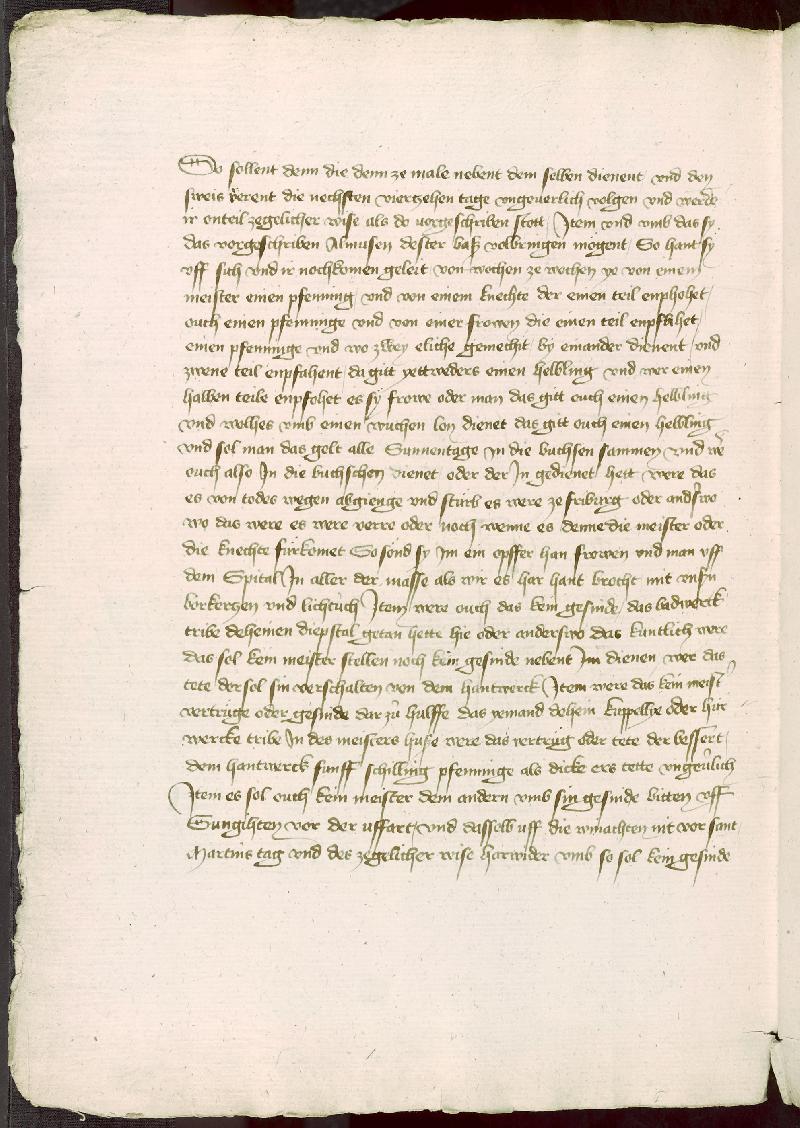 So sollent denn die denn ze male nebent dem selben dienent vnd den
sweis rerent die nechsten viertzehen tage vngeuerlich volgen vnd werde
ir onteil zegelicher wise als do uorgeschriben stott Item vnd vmb das sy
das vorgeschriben Almusen dester baß volbringen mogent So hant sy
vff sich vnd ir nochkomen geleit von wochen ze wochen ye von einem
meister einen pfenning vnd von einem knechte der einen teil enphohet
ouch einen pfenninge vnd von einer frowen die einen teil enpfahet
einen pfenninge vnd wo zwey eliche gemecht by einander dienent vnd
zwene teil enpfahent da gitt yettweders einen helbling vnd wer einen
halben teile enpfohet es sy frowe oder man das gitt ouch einen helbling
vnd welhes vmb einen wuchen lon dienet das gitt ouch einen helbling
vnd sol man das gelt alle Sunnentage in die buchsen sammen vnd we
ouch also In die buchschen dienet oder der In gedienet hett were das
es von todes wegen abgienge vnd sturb es were ze friburg oder anderswo
wo das were es were verre oder noch wenne es denne die meister oder
die knechte fürkomet So sönd sy Im ein opffer han frowen vnd man vff
dem Spital In aller der masse als wir es har hant brocht mit vnsern
borkertzen vnd lichtuch Item were ouch das kein gesinde das badwerck
tribe deheinen diepstal getan hette hie oder anderswo das kuntlich were
das sol kein meister stellen noch kein gesinde nebent Im dienen wer das
tete der sol sin verschalten von dem hantwerck Item were das kein meister
vertruge oder gesinde dar zu hulffe das yemand dehein kuppellye oder hur
wercke tribe In des meisters huse were das vertrug oder tete der bessert
dem hantwerck funff schilling pfenninge als dicke ers tette vngeuerlich
Item es sol ouch kein meister dem andern vmb sin gesinde bitten vff
Sungihten vor der uffart vnd dasselb uff die winachten nit vor sant
Martins tag vnd des zegelicher wise harwider vmb so sol kein gesinde